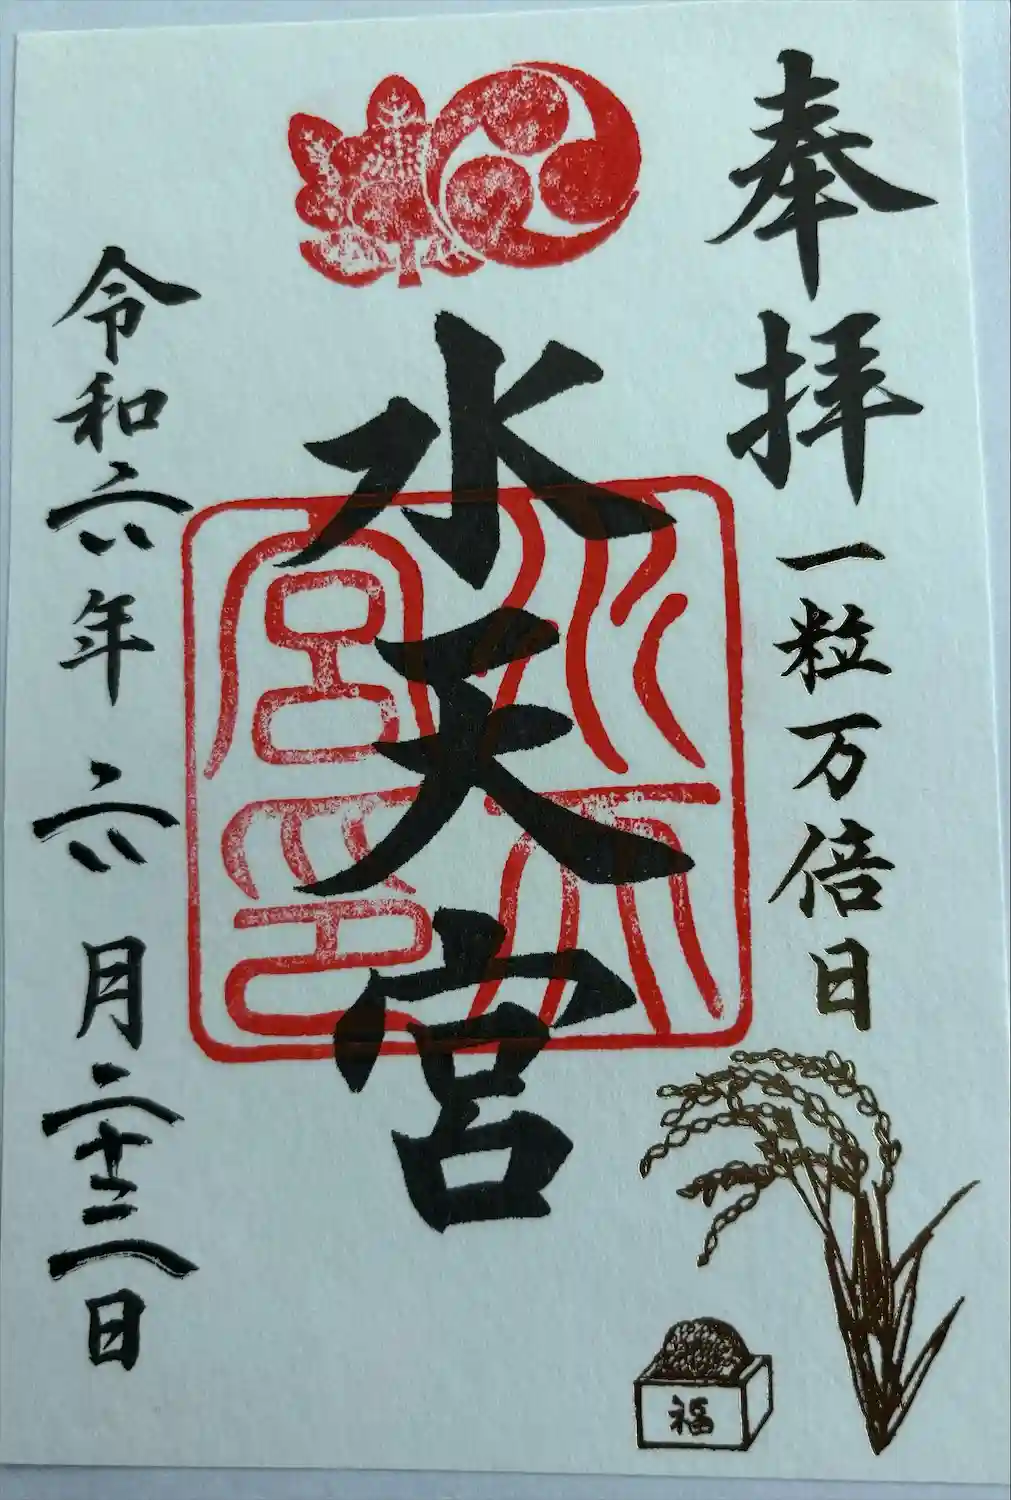 奉拝
一粒万倍日
水天宮
水天宮印
令和六年六月二十二日
福